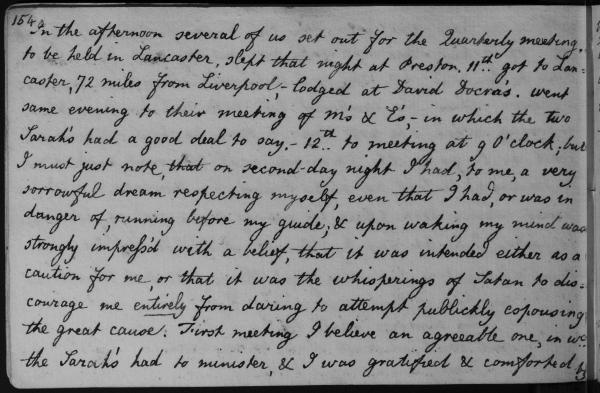 154
In the afternoon several of us set out for the Quarterly meeting,
to be held in Lancaster, slept that night at Preston. 11th. got to Lan=
caster, 72 miles from Liverpool,- lodged at David Docra's. went
same evening to their meeting of M's & E's,- in which the two
Sarah's had a good deal to say.- 12th. to meeting at 9 O'clock, but
I must just note, that on second-day night I had, to me, a very
sorrowful dream respecting myself, even that I had, or was in
danger of, running before my guide, & upon waking my mind was
strongly impress'd with a belief, that it was intended either as a
caution for me, or that it was the whisperings of Satan to dis=
courage me entirely from daring to attempt publickly espousing
the great cause. First meeting I believe an agreeable one, in wch.
the Sarah's had to minister, & I was gratified & comforted by